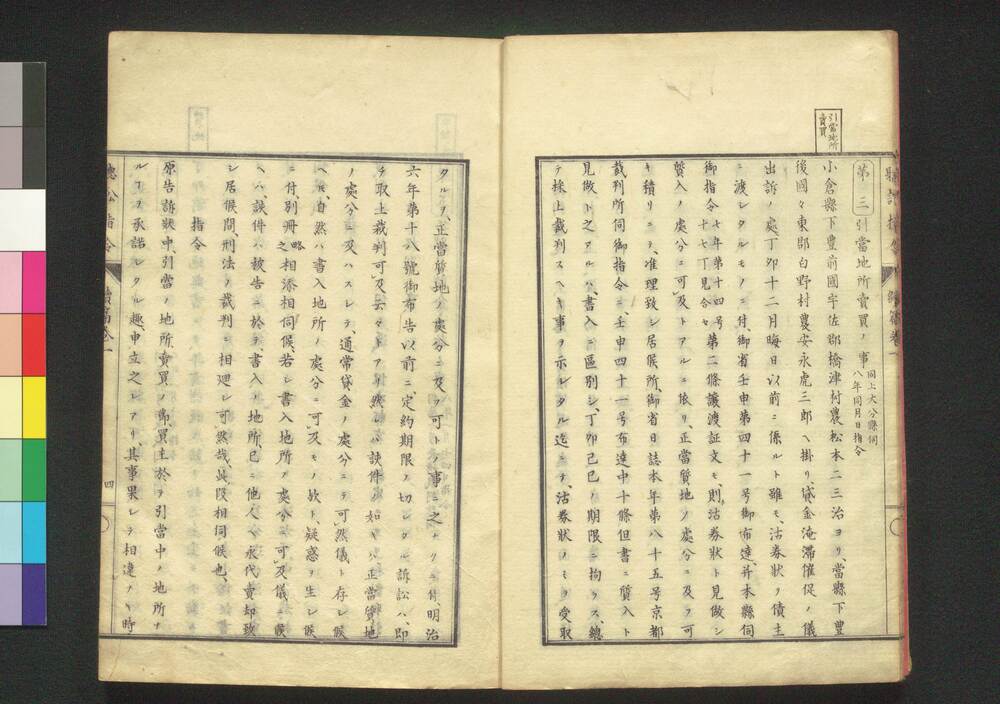 引當地所
賣買
第三 引當地所賣買ノ事 同上大分縣伺
八年同月日指令
小倉縣下豐前國宇佐郡橋津村農松本二三治ヨリ、當縣下豐
後國々東郡白野村農安永虎三郎ヘ掛リ、貸金淹滯催促ノ儀
出訴ノ處丁卯十二月晦日以前ニ係ルト雖モ、沽券狀ヲ債主
ニ渡シタルモノニ付、御省壬申第四十一号御布達、并本縣伺
御指令 七年第十四号 十七丁見合セ 第二條讓渡証文モ、則沽券狀ト見做シ
質入ノ處分ニ可及トアルニ依リ、正當質地ノ處分ニ及フ可
キ積リニテ、准理致シ居候所、御省日誌本年第八十五号京都
裁判所伺御指令ニ、壬申四十一号布達中十條但書ニ質入ト
見做ト之アルハ、書入ニ區別シ、丁卯己巳ノ期限ニ拘ラス、總
テ採上裁判スヘキ事ヲ示シタル迄ニテ、沽券狀ノミヲ受取
タルヲ、正當質地ノ處分ニ及フ可トノ事ニ之ナクニ付、明治
六年第十八號御布告以前ニ、定約期限ノ切レタル訴訟ハ、即
チ取上裁判可及云々トアリ、然レハ該件ノ如キハ正當質地
ノ處分ニ及ハスシテ、通常貸金ノ處分ニテ可然儀ト存シ候
ヘ𪜈、自然ハ書入地所ノ處分ニ可及モノ欤ト、疑惑ヲ生シ候
ニ付、別冊 略之 相添相伺候、若シ書入地所ノ處分ニ可及儀ニ候
ヘハ、該件ハ被告ニ於テ、書入ノ地所、已ニ他人ヘ永代賣却致
シ居候間、刑法ノ裁判ニ相廻シ可然哉、此段相伺候也、
指令
原告訴狀中引當ノ地所賣買ノ節、買主於テ引當中ノ地所ナ
ルヿヲ承諾シタル趣、申立之レアリ、其事果シテ相違ナキ時
聽訟指令
續篇卷一
四